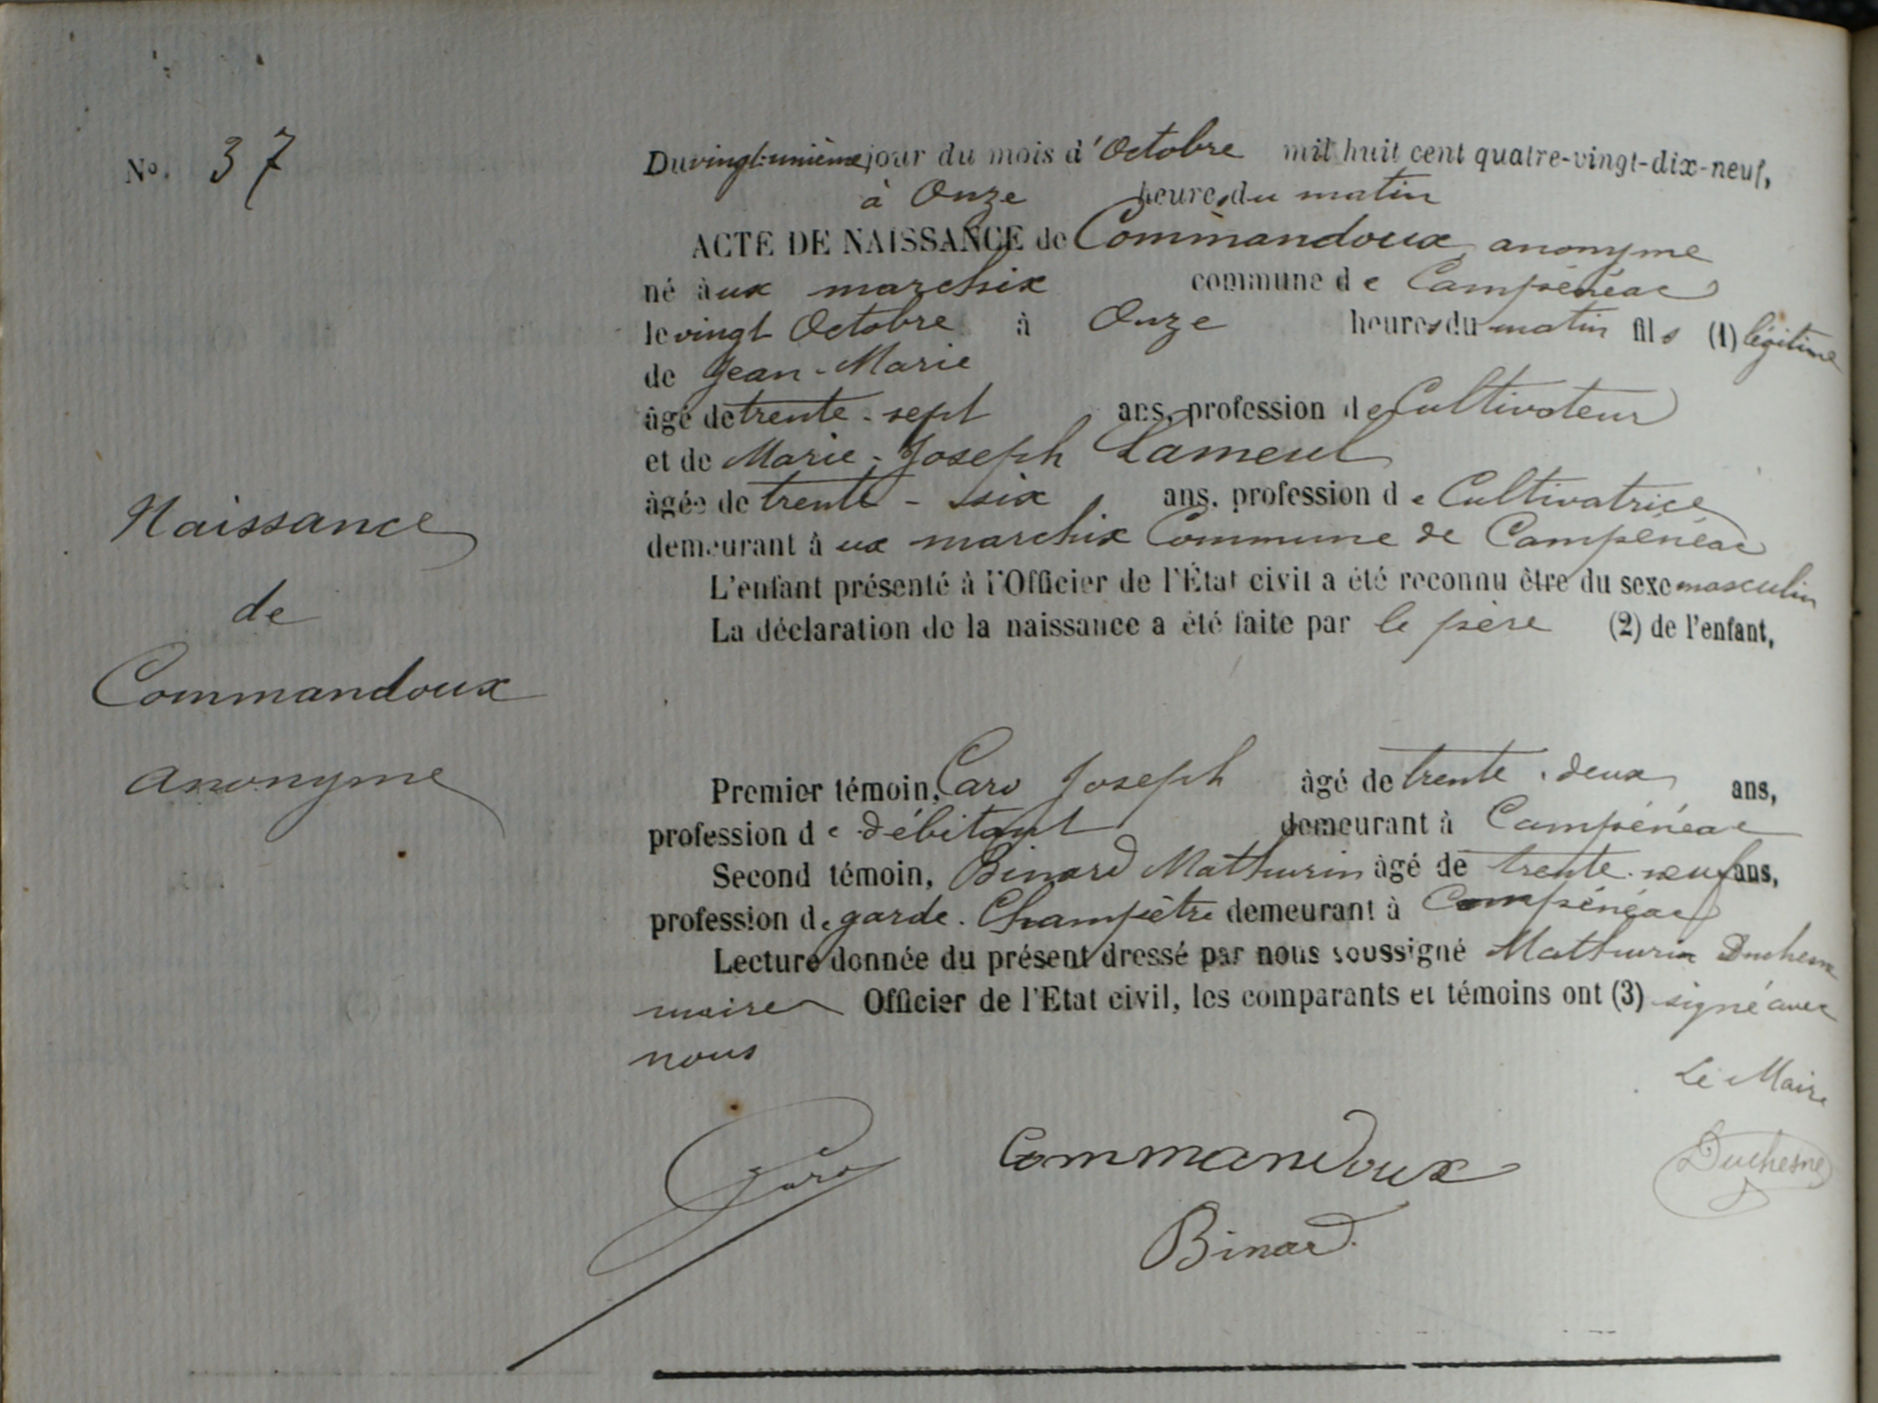 No. 37
Du vingt-unième jour du mois d'Octobre mil huit cent quatre-vingt-dix-neuf,
à Onze heures du matin
ACTE DE NAISSANCE de Commandoux anonyme
né à ux marchix commune de Campénéac
le vingt Octobre à Onze heures du matin fils (1) légitime
de Jean-Marie
âgé de trente-sept ans, profession de Cultivateur
et de Marie-Joseph Lameul
âgée de trente-six ans, profession de Cultivatrice
demeurant à ux marchix Commune de Campénéac
L'enfant présenté à l'Officier de l'État civil a été reconnu être du sexe masculin
La déclaration de la naissance a été faite par le père (2) de l'enfant,
Naissance
de
Commandoux
anonyme
Premier témoin, Caro Joseph âgé de trente-deux ans,
profession de débitant demeurant à Campénéac
Second témoin, Binard Mathurin âgé de trente-neuf ans,
profession de garde-Champêtre demeurant à Campénéac
Lecture donnée du présent dressé par nous soussigné Mathurin Duchesne
maire Officier de l'Etat civil, les comparants et témoins ont (3) signé avec
nous
Le Maire
Caro Commandoux Duchesne
Binard